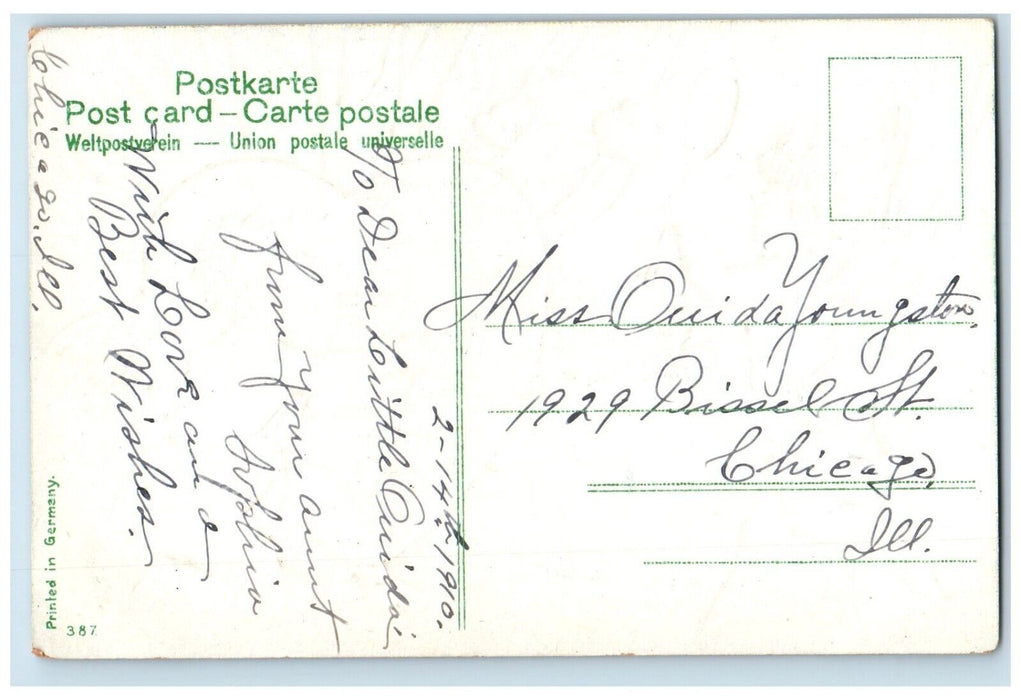 Postkarte
Post card – Carte postale
Weltpostverein — Union postale universelle
2-14th 1910.
To Dear Little Ouida
from your aunt
Sophia
With Love and
Best Wishes.
Chicago. Ill.
Miss Ouida Youngston.
1929 Bissel St.
Chicago,
Ill.
Printed in Germany.
387